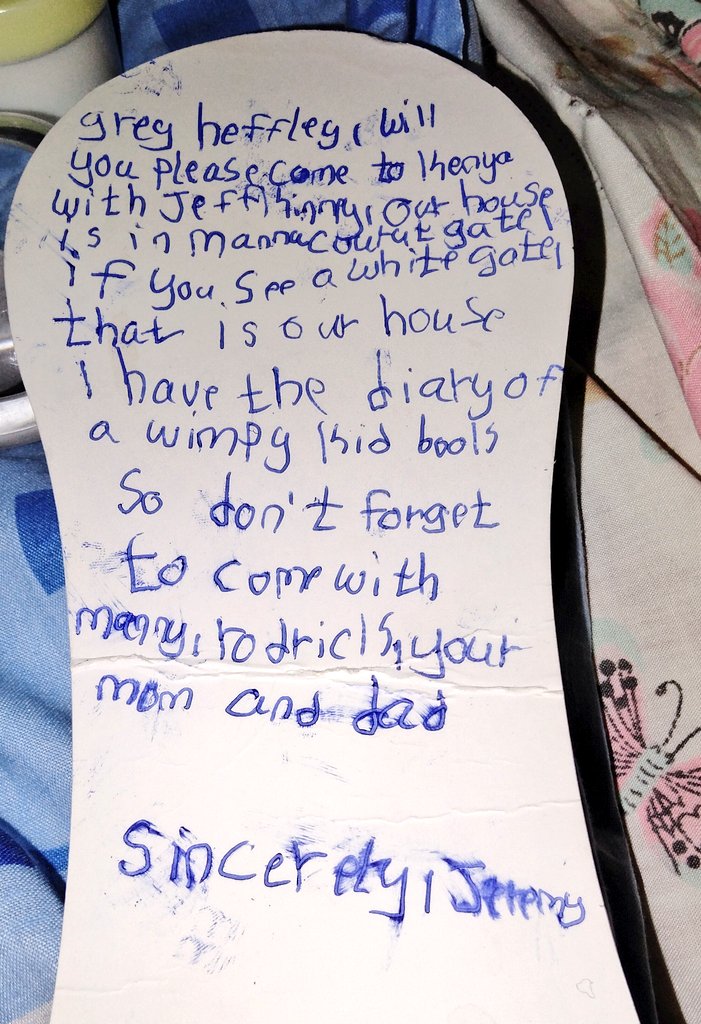 greg heffley, will
you please come to kenya
with Jeff kinny, Our house
is in manna courut gate,
if you see a white gate,
that is our house
i have the diary of
a wimpy kid books
So don't forget
to come with
manny, rodrick, your
mom and dad
Sincerety, Jeremy